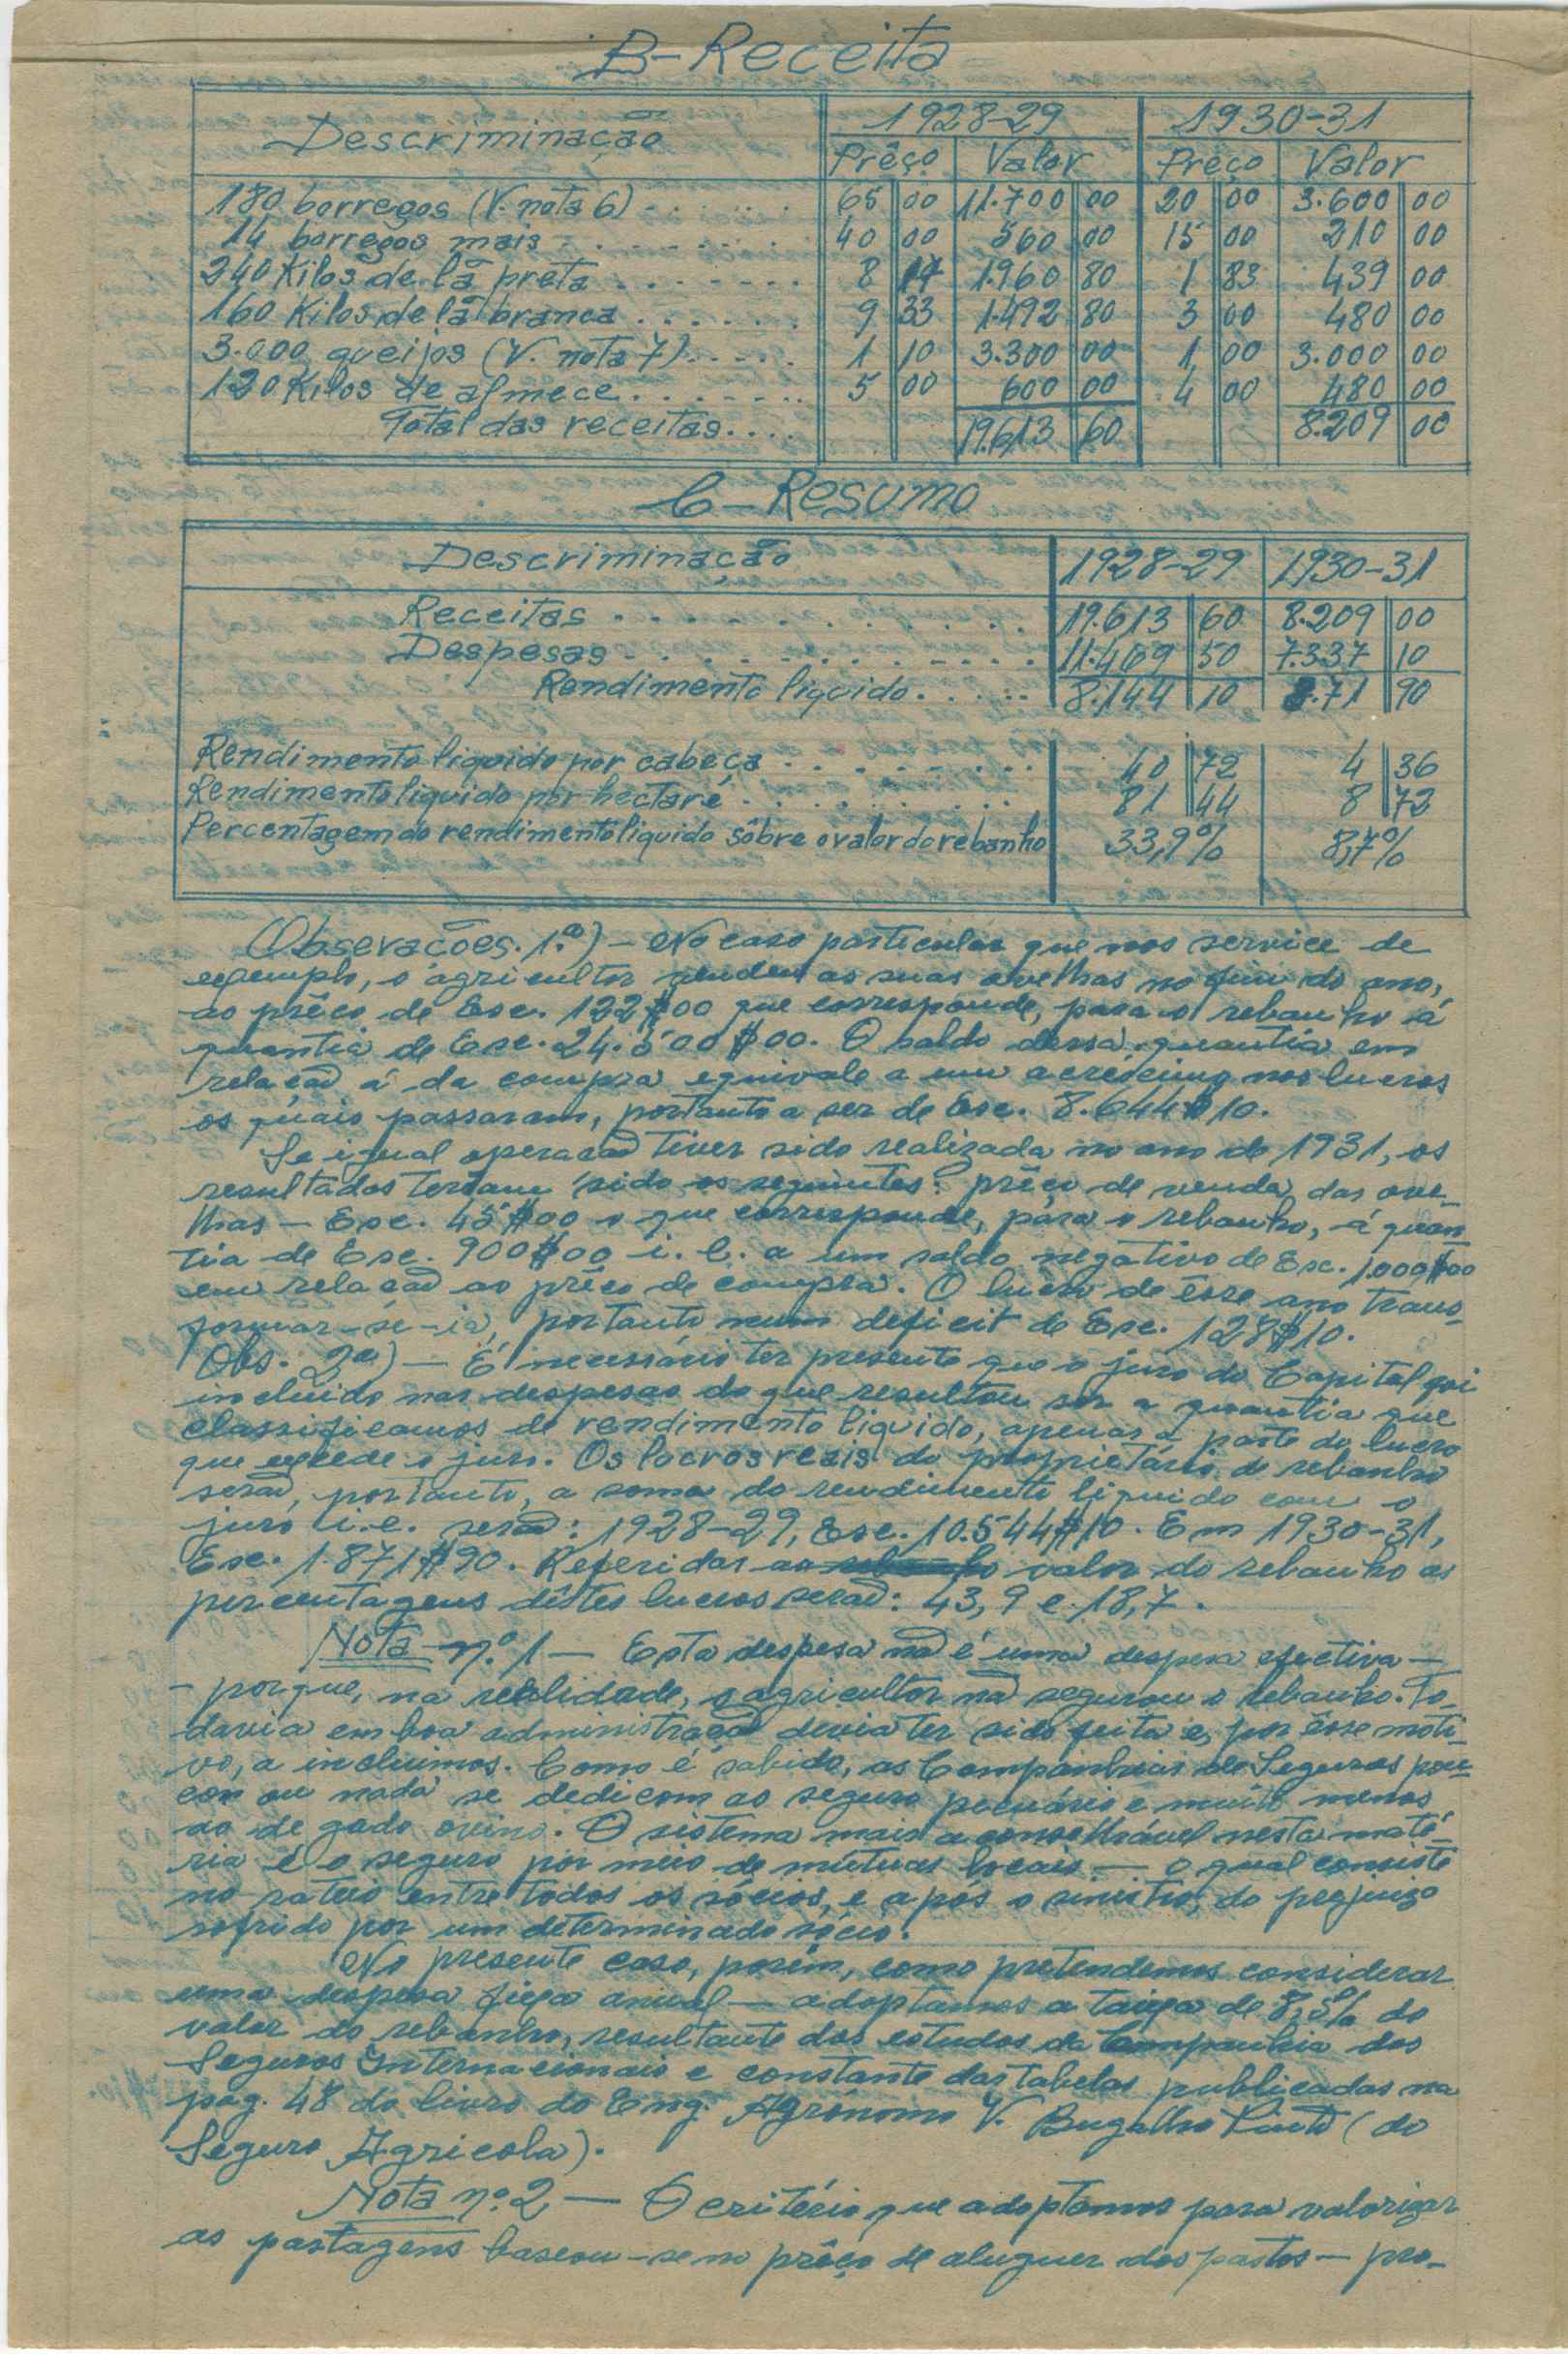 B-Receita
Descriminação 1928-29 1930-31
Prêço Valor Preço Valor
180 borregos (V. nota 6) 65 00 11.700 00 20 00 3.600 00
14 borregos mais 40 00 560 00 15 00 210 00
240 Kilos de lã preta 8 17 1.960 80 1 83 439 00
160 Kilos de lã branca 9 33 1.492 80 3 00 480 00
3.000 queijos (V. nota 7) 1 10 3.300 00 1 00 3.000 00
120 Kilos de almece 5 00 600 00 4 00 480 00
Total das receitas 19.613 60 8.209 00
C-Resumo
Descriminação 1928-29 1930-31
Receitas 19.613 60 8.209 00
Despesas 11.469 50 7.337 10
Rendimento liquido 8.144 10 8.71 90
Rendimento liquido por cabeça 40 72 4 36
Rendimento liquido por hectare 81 44 8 72
Percentagem do rendimento liquido sôbre o valor do rebanho 33,9% 8,7%
Obsevações. 1.ª) - No caso particular que nos service de
exemplo, o agricultor vendeu as suas ovelhas no fim do ano,
ao prêço de Esc. 122$00 que corresponde, para o rebanho á
quantia de Esc. 24.500$00. O saldo dessa quantia em
relação á da compra equivale a um acréscimo nos lucros
os quais passaram, portanto a ser de Esc. 8.644$10.
Se igual operação tiver sido realizada no ano de 1931, os
resultados teriam sido os seguintes: prêço de venda das ove-
lhas - Esc. 45$00 o que corresponde, para o rebanho, á quan-
tia de Esc. 900$00 i. é. a um saldo negativo de Esc. 1.000$00
em relação ao prêço de compra. O lucro de êsse ano trans-
formar-se-ia, portanto num deficit de Esc. 128$10.
Obs. 2ª) - É necessário ter presente que o juro do Capital foi
incluido nas despesas do que resultou ser a quantia que
classificamos de rendimento liquido, apenas a parte do lucro
que excede o juro. Os lucros reais do proprietário do rebanho
serão, portanto, a soma do rendimento liquido com o
juro i.e. serão: 1928-29, Esc. 10.544$10. Em 1930-31,
Esc. 1.871$90. Referidas ao valor do rebanho as
percentagens dêstes lucros serão: 43,9 e 18,7.
Nota nº. 1 - Esta despesa não é uma despesa efectiva -
- porque, na realidade, o agricultor não segurou o rebanho. To-
davia em boa administração devia ter sido feita e, por êsse moti-
vo, a incluimos. Como é sabido, as Companhias de Seguros pou-
con ou nada se dedicam ao seguro pecuário e muito menos
ao de gado ovino. O sistema mais aconselhável nesta maté-
ria é o seguro por meio de mútuas locais - o qual consiste
no rateio entre todos os sócios, e após o sinistro, do prejuizo
sofrido por um determinado sócio.
No presente caso, porém, como pretendemos considerar
uma despesa fixa anual - adoptamos a taixa de 8,5% do
valor do rebanho, resultante dos estudos da Companhia dos
Seguros Internacionais e constante das tabelas publicadas na
pag. 48 do livro do Eng. Agrónomo V. Bugalho Pinto (do
Seguro Agricola).
Nota nº. 2 - O critério que adoptamos para valorizar
as pastagens baseou-se no prêço de aluguer dos pastos - pro-